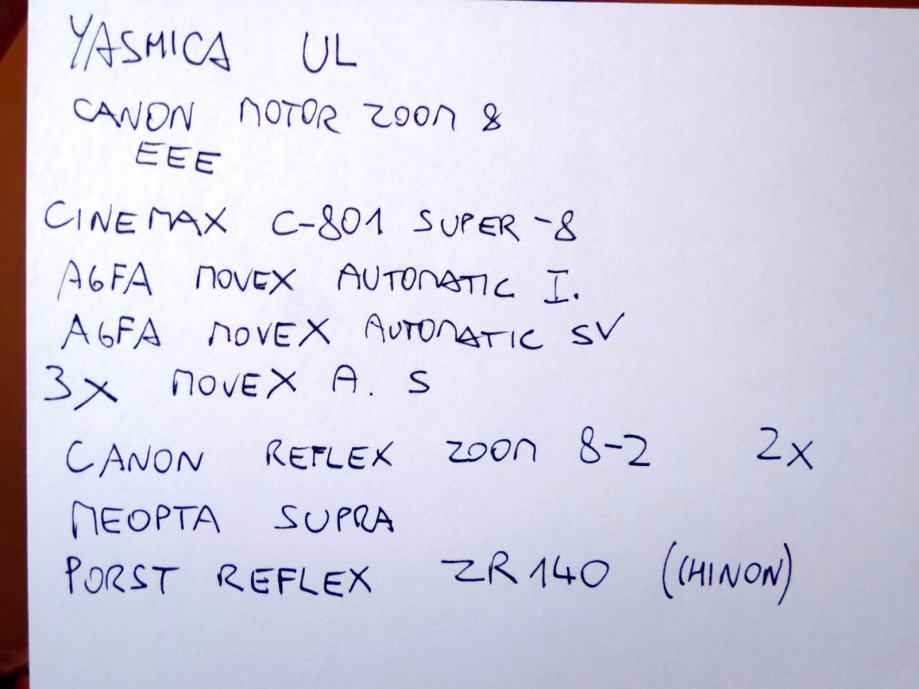 YASHICA UL
CANON MOTOR ZOOM 8
EEE
CINEMAX C-801 SUPER-8
AGFA MOVEX AUTOMATIC I.
AGFA MOVEX AUTOMATIC SV
3x MOVEX A. S
CANON REFLEX ZOOM 8-2 2x
MEOPTA SUPRA
PORST REFLEX ZR140 (CHINON)